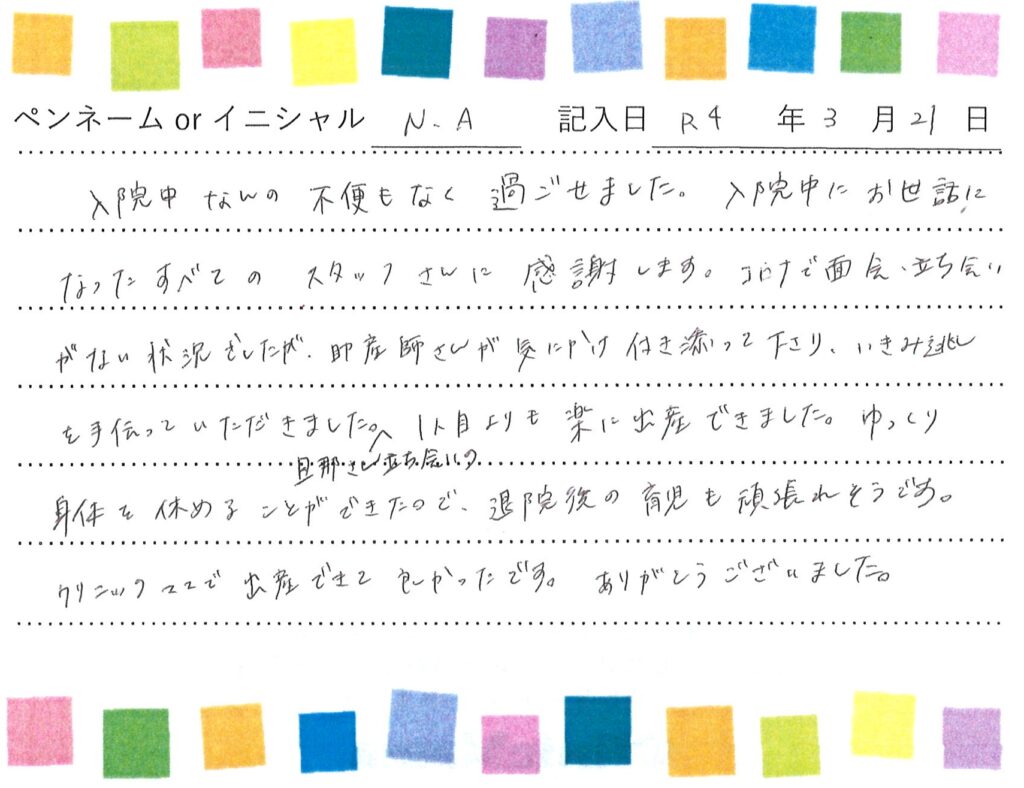 ペンネーム or イニシャル N.A 記入日 R4 年 3 月 21 日
入院中 なんの 不便もなく 過ごせました。 入院中に お世話に
なった すべての スタッフさんに 感謝します。 コロナで面会・立ち会い
がない状況でしたが、助産師さんが気にかけ付き添って下さり、いきみ逃し
を手伝っていただきました。1人目よりも 楽に出産できました。ゆっくり
旦那さん立ち会いの
身体を休めることができたので、退院後の育児も頑張れそうです。
クリニックココで出産できて良かったです。 ありがとうございました。